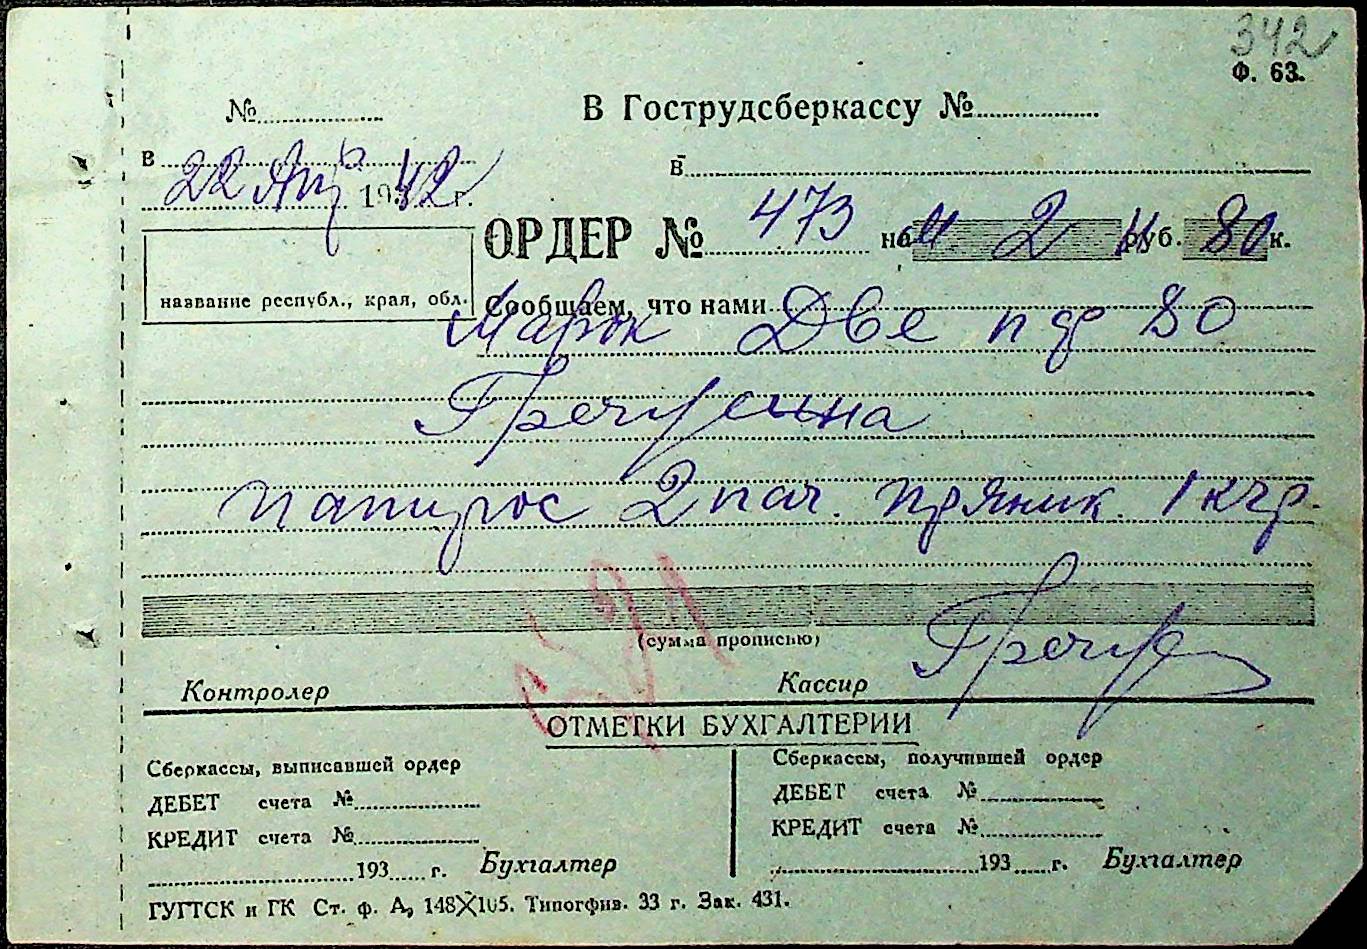 342
Ф. 63.
№ В Гострудсберкассу №
в 22 Апр 1942 г. в
ОРДЕР № 473 на 2 руб. 80 к.
название республ., края, обл.
Сообщаем, что нами
Марок Две п др 80
Гречушна
папирос 2 пач. пряник. 1 кгр.
(сумма прописью)
Контролер Кассир
ОТМЕТКИ БУХГАЛТЕРИИ
Сберкассы, выписавшей ордер
ДЕБЕТ счета №
КРЕДИТ счета №
193 г. Бухгалтер
Сберкассы, получившей ордер
ДЕБЕТ счета №
КРЕДИТ счета №
193 г. Бухгалтер
ГУГТСК и ГК Ст. ф. А, 148X105. Типогфив. 33 г. Зак. 431.